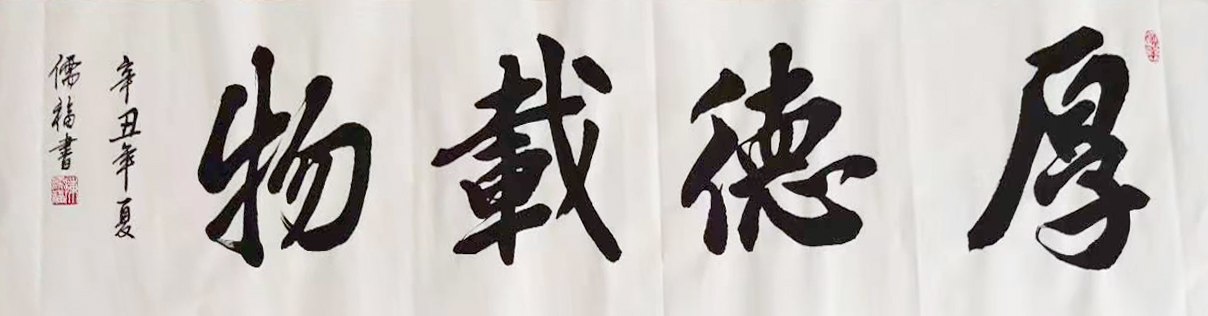 厚德載物
辛丑年夏
儒福書